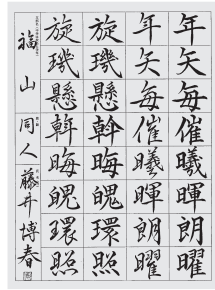 年矢每催曦暉朗曜
年矢每催曦暉朗曜
旋璣懸斡晦魄環照
旋璣懸斡晦魄環照
福山同人藤井博春